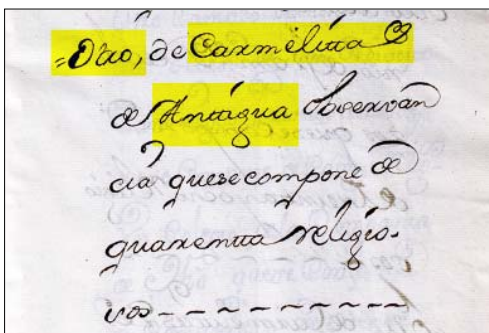 =Otro, de Carmelitas
de Antigua observan
cia que se compone de
quarenta religio-
sos----------